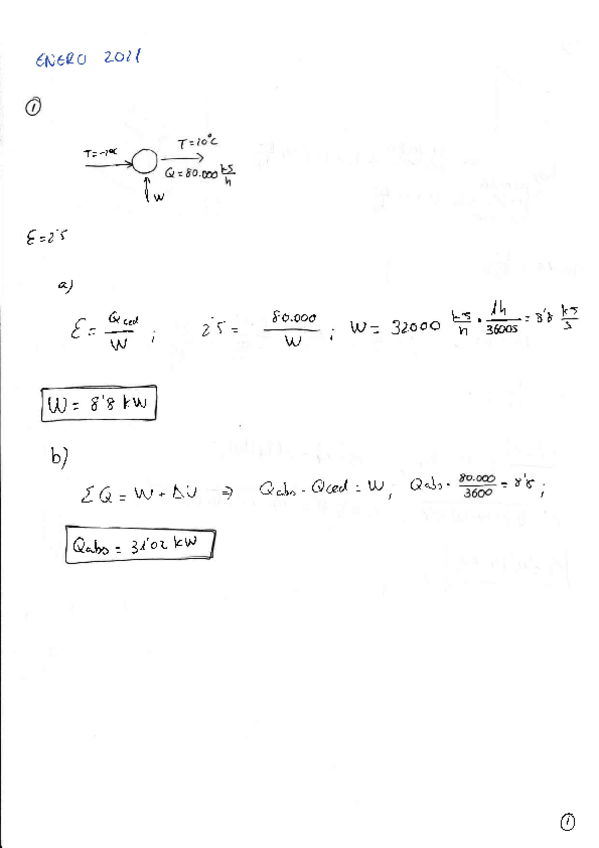 ENERO 2021
①
T=-7°C
T=20°C
Q=80.000 kJ/h
W
ε=2'5
a)
ε = Qced/W ; 2'5 = 80.000/W ; W = 32000 kJ/h · 1h/3600s = 8'8 kJ/s
W = 8'8 kW
b)
ΣQ = W + ΔU ⇒ Qabs - Qced = W, Qabs - 80.000/3600 = 8'8 ;
Qabs = 31'02 kW
①